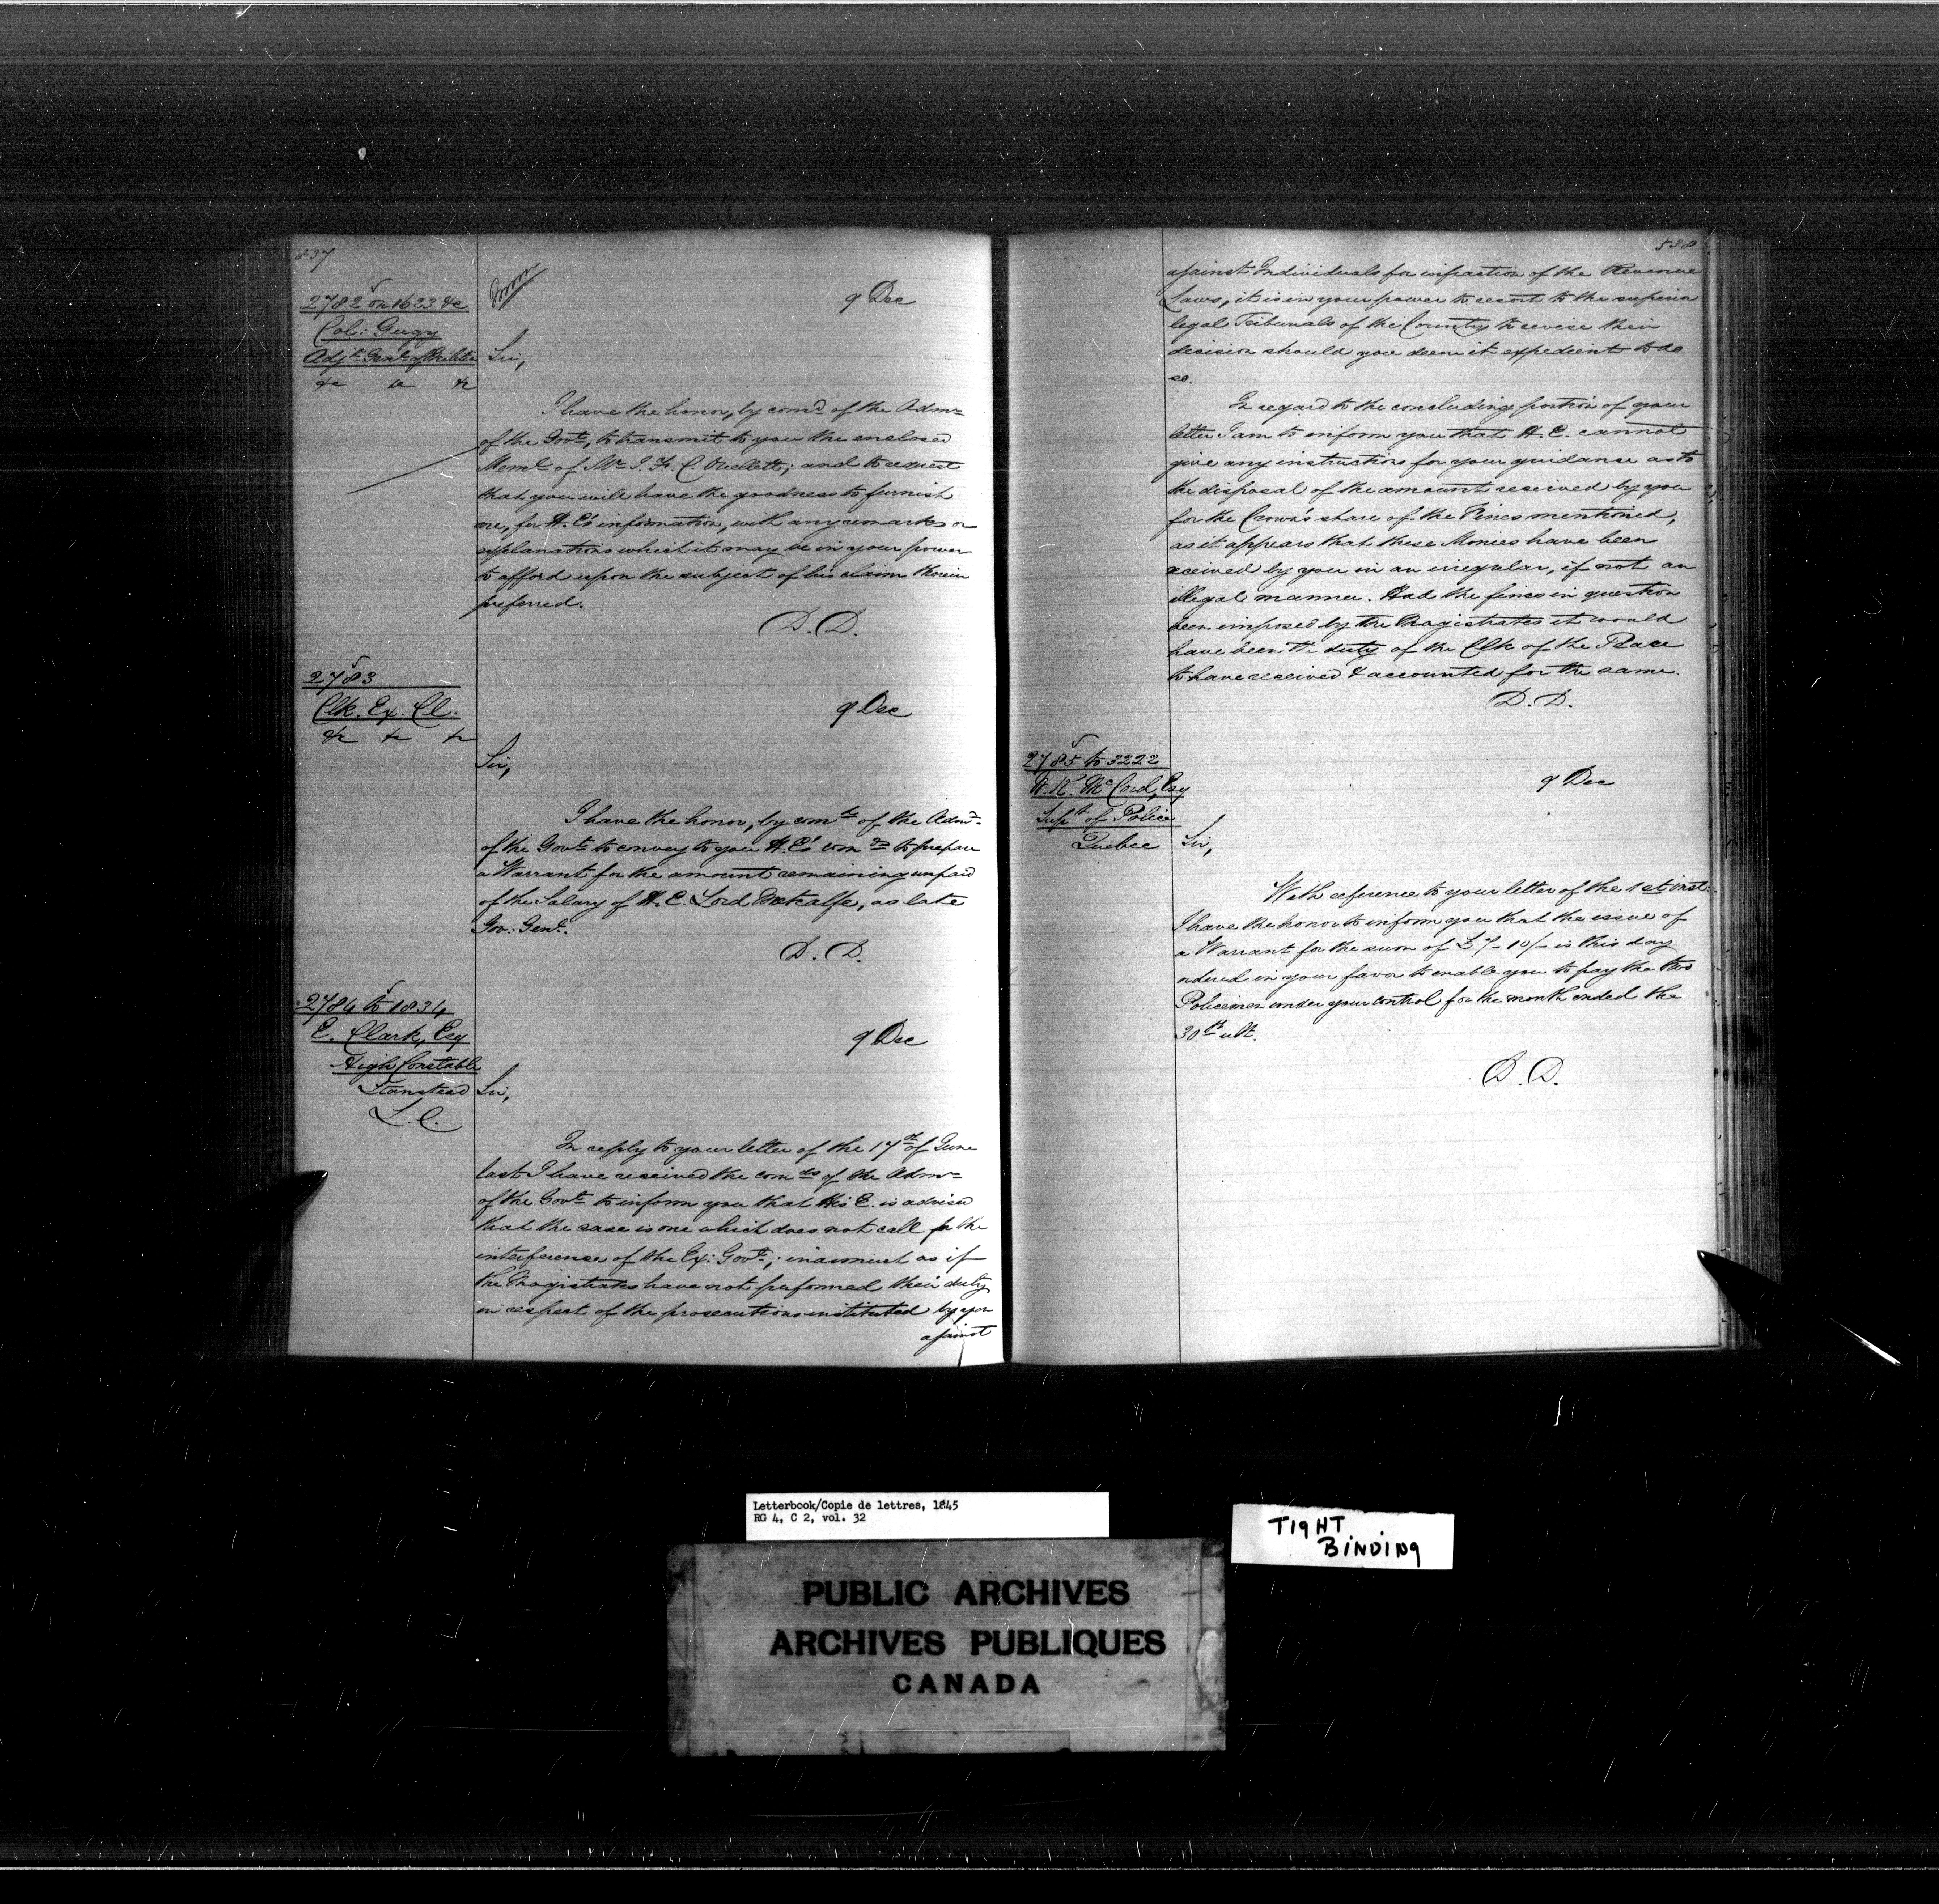 537
2782 on 1623 &c
Col: Gugy
Adjt. Genl. of Militia
&c &c &c
9 Dec
Sir,
I have the honor, by comd. of the Admr.
of the Govt., to transmit to you the enclosed
Meml. of Mr. J. F. C. Ouellett; and to request
that you will have the goodness to furnish
me, for H. E's information, with any remarks or
explanations which it may be in your power
to afford upon the subject of his claim therein
preferred.
D. D.
2783
Clk. Ex. Cl.
&c &c &c
9 Dec
Sir,
I have the honor, by comd. of the Admr.
of the Govt. to convey to you H. E's comds. to prepare
a Warrant for the amount remaining unpaid
of the Salary of H. E. Lord Metcalfe, as late
Gov: Genl.
D. D.
2784 to 1834
E. Clark, Esq
High Constable
Stanstead
L. C.
9 Dec
Sir,
In reply to your letter of the 17th of June
last I have received the comds of the Admr.
of the Govt. to inform you that His E. is advised
that the case is one which does not call for the
interference of the Ex: Govt.; inasmuch as if
the Magistrates have not performed their duty
in respect of the prosecutions instituted by you
against
538
against Individuals for infraction of the Revenue
Laws, it is in your power to resort to the superior
legal Tribunals of the Country to revise their
decision should you deem it expedient to do
so.
In regard to the concluding portion of your
letter I am to inform you that H. E. cannot
give any instructions for your guidance as to
the disposal of the amount received by you
for the Crown's share of the Fines mentioned,
as it appears that these Monies have been
received by you in an irregular, if not an
illegal manner. Had the fines in question
been imposed by the Magistrates it would
have been the duty of the Clk of the Peace
to have received & accounted for the same.
D. D.
2785 to 3222
W. K. McCord, Esq
Supt. of Police
Quebec
9 Dec
Sir,
With reference to your letter of the 1st inst:
I have the honor to inform you that the issue of
a Warrant for the sum of £7-10/- is this day
ordered in your favor to enable you to pay the two
Policemen under your control for the month ended the
30th ult.
D. D.
Letterbook/Copie de lettres, 1845
RG 4, C 2, vol. 32
TIGHT
BINDING
PUBLIC ARCHIVES
ARCHIVES PUBLIQUES
CANADA